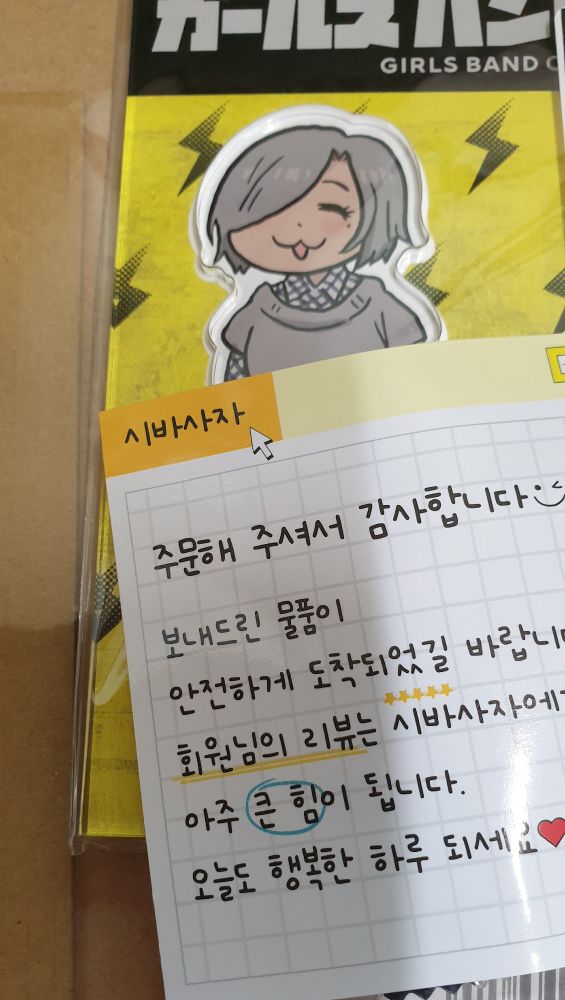 ガールズバン
GIRLS BAND C
시바사자
주문해 주셔서 감사합니다
보내드린 물품이
안전하게 도착되었길 바랍니다
회원님의 리뷰는 시바사자에게
아주 큰 힘이 됩니다.
오늘도 행복한 하루 되세요